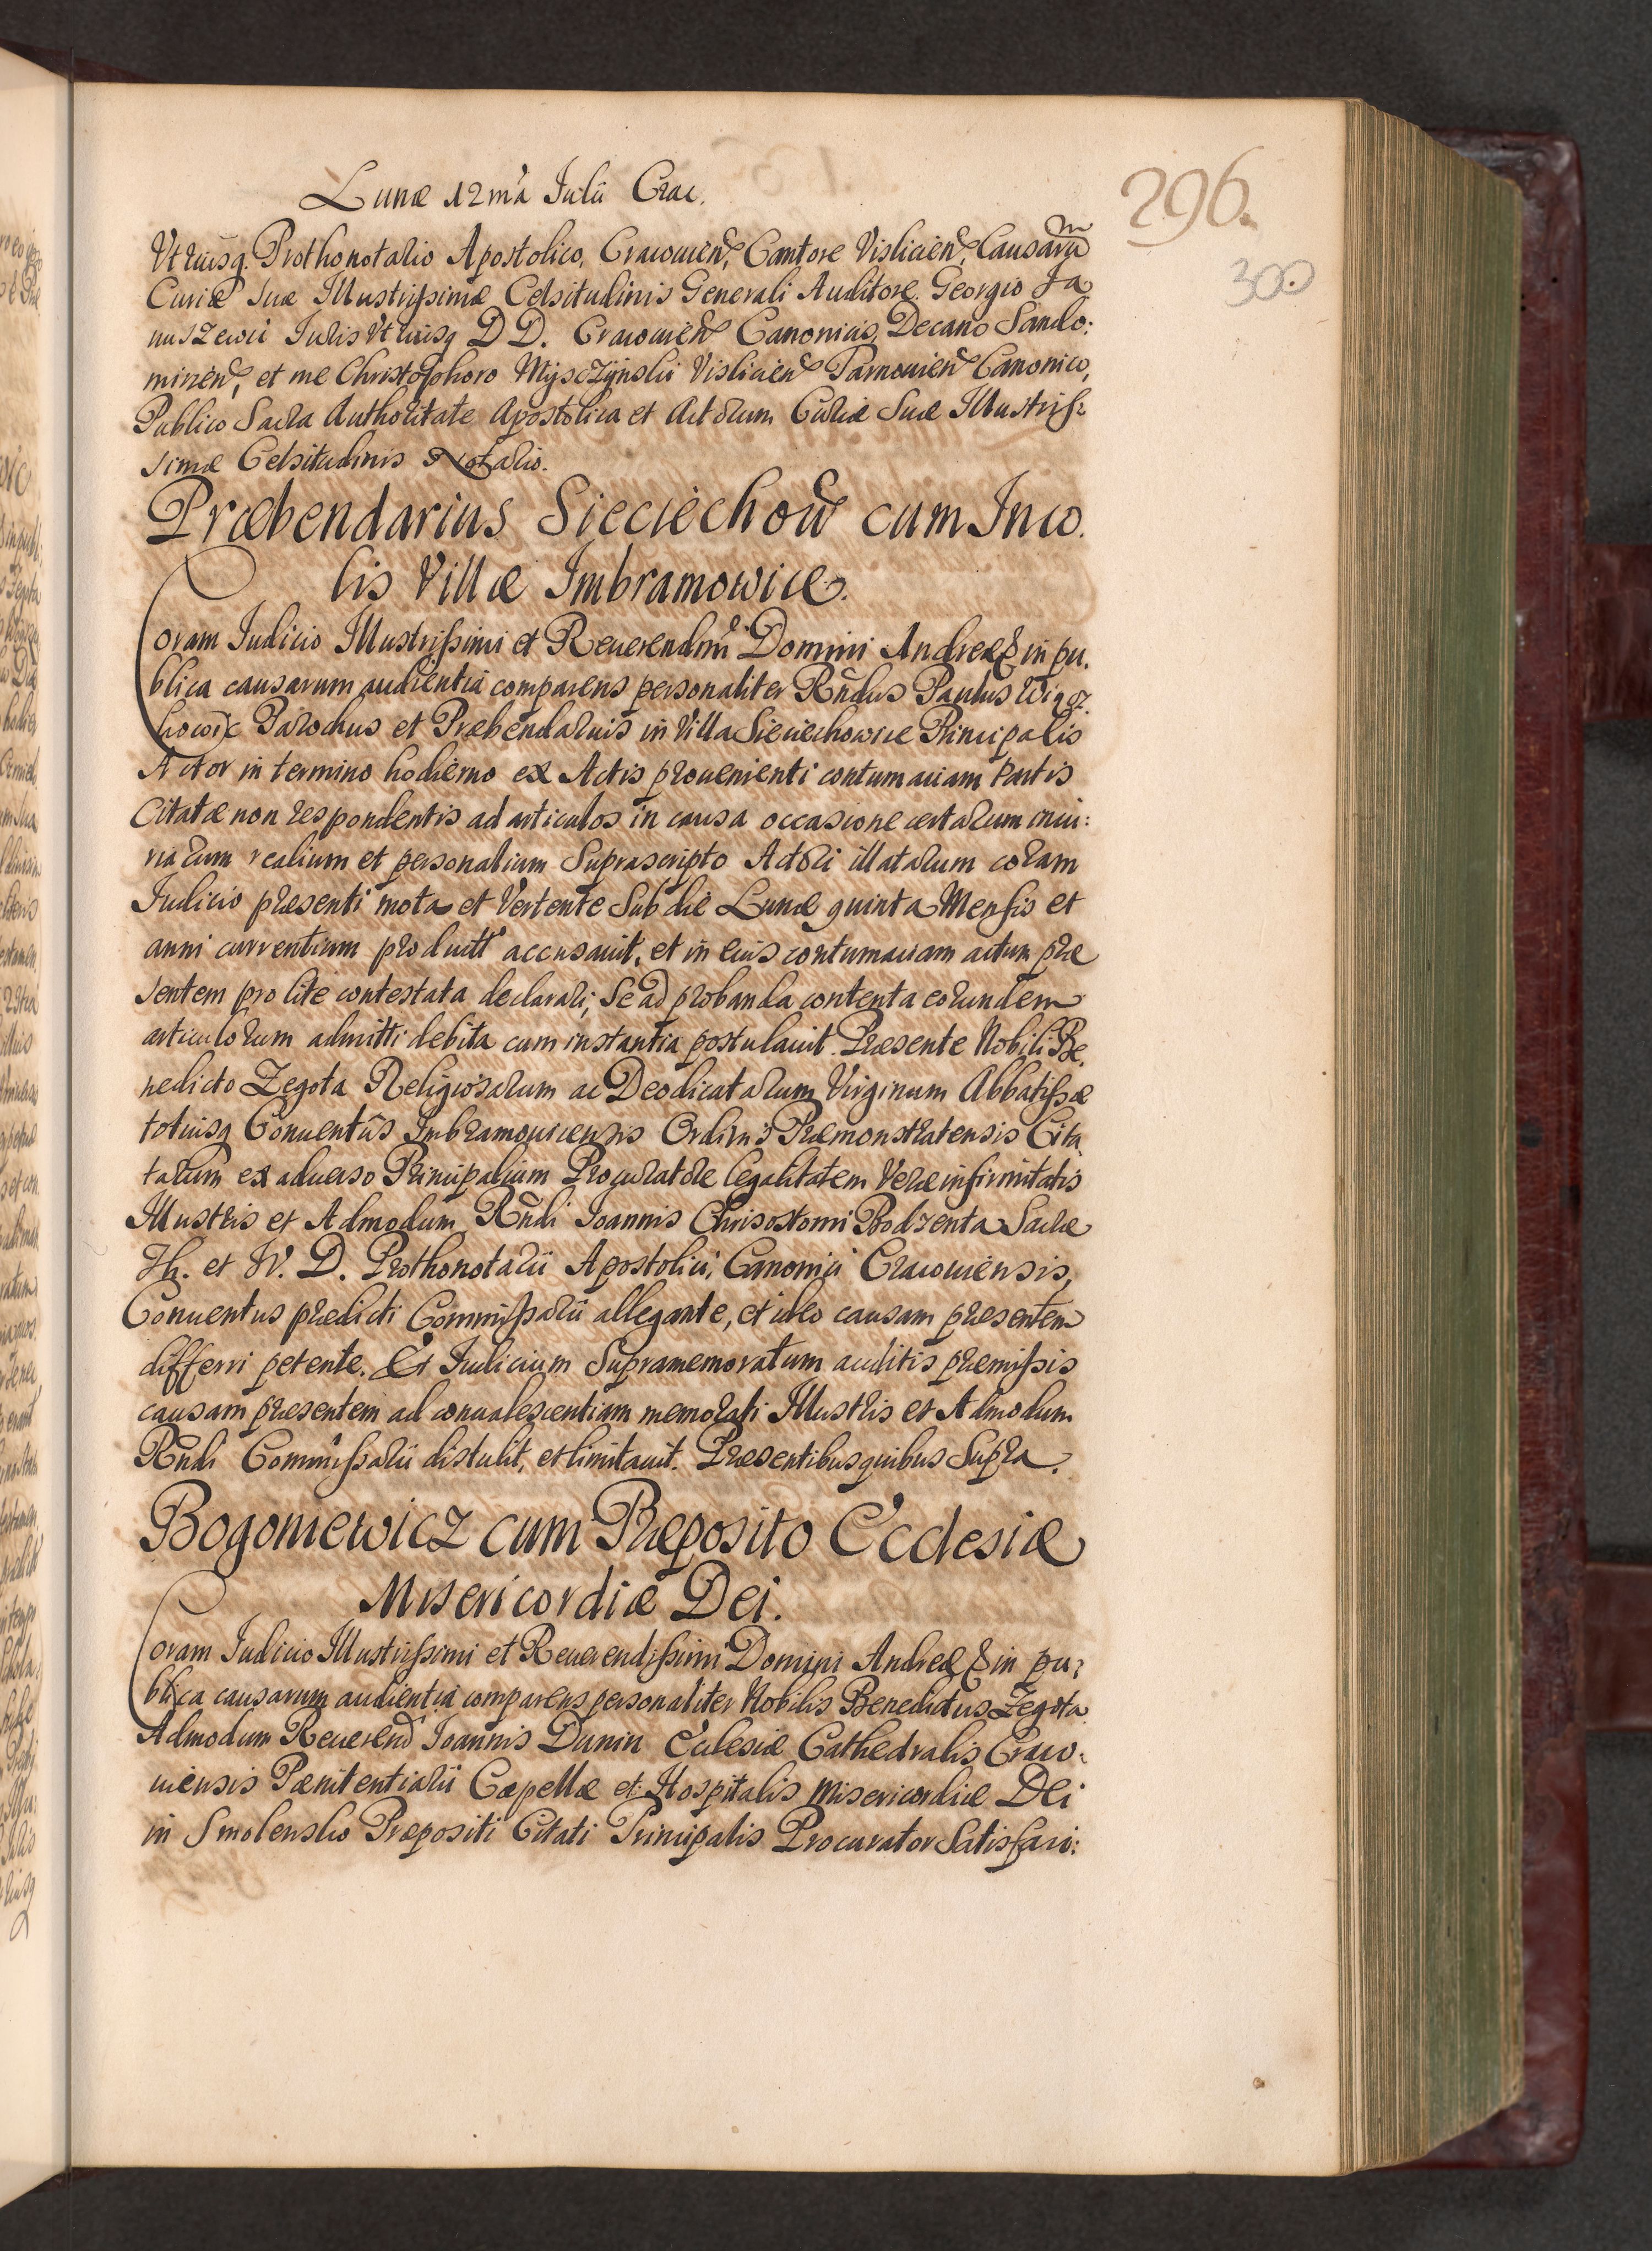 Lunæ 12 mâ Iulii Crac.
296.
300
Vtriusq. Prothonotario Apostolico, Cracouien, Cantore Visliciën, Causarum
Curiæ Suæ Illustrissimæ Celsitudinis Generali Auditore. Georgio Ja
nuszewii Iuris Vtriusq DD. Cracouien Canonicis, Decano Sando:
miriën, et me Christophoro Mysczÿnski Visliciën Tarnouien Canonico,
Publico Sacra Authoritate Apostolica et Actorum Curiæ Suæ Illustris:
simæ Celsitudinis Notario.
Præbendarius Sieciechow cum Inco.
lis Villæ Imbramowice.
Coram Iudicio Illustrissimi et Reuerendmi Domini Andreæ & in pu.
blica causarum audientia comparens personaliter Rndus Paulus
Parochus et Præbendarius in Villa Sieciechowice Principalis
Actor in termino hodierno ex Actis proueniënti contumaciam Partis
Citatæ non respondentis ad articulos in causa occasione certarum iniu:
riarum realium et personalium Suprascripto Actori illatarum coram
Iudicio præsenti mota et Vertente Sub die Lunæ quinta Mensis et
anni currentium produitt accusauit, et in eius contumaciam actum præ
sentem pro lite contestata declarari, se ad probanda contenta eorundem
articulorum admitti debita cum instantia postulauit. Præsente Nobili Be
nedicto Zegota Religiosarum ac Deodicatarum Virginum Abbatissæ
totiusq Conuentûs Imbramouicensis Ordinis Præmonstratensis Cita
tarum ex aduerso Principalium Procuratore legalitatem Veræ infirmitatis
Illustris et Admodum Rndi Ioannis Chrisostomi Bodzenta Sacræ
Th. et IV. D. Prothonotarii Apostolici, Canonici Cracouiensis,
Conuentus prædicti Commissarii allegante, et ideo causam præsentem
differri petente. Et Iudicium Supramemoratum auditis præmissis
causam præsentem ad conualescentiam memorati Illustris et Admodum
Rndi Commissarii distulit, et limitauit. Præsentibus quibus Supra.
Bogoniewicz cum Præposito Ecclesiæ
Misericordiæ Dei.
Coram Iudicio Illustrissimi et Reuerendissimi Domini Andreæ & in pu:
blica causarum audientia comparens personaliter Nobilis Benedictus Zegota
Admodum Reuerend Ioannis Dunin Ecclesiæ Cathedralis Craco:
uiensis Pænitentiarii Capellæ et Hospitalis Misericordiæ Dei
in Smolensko Præpositi Citati Principalis Procurator Satisfaci: